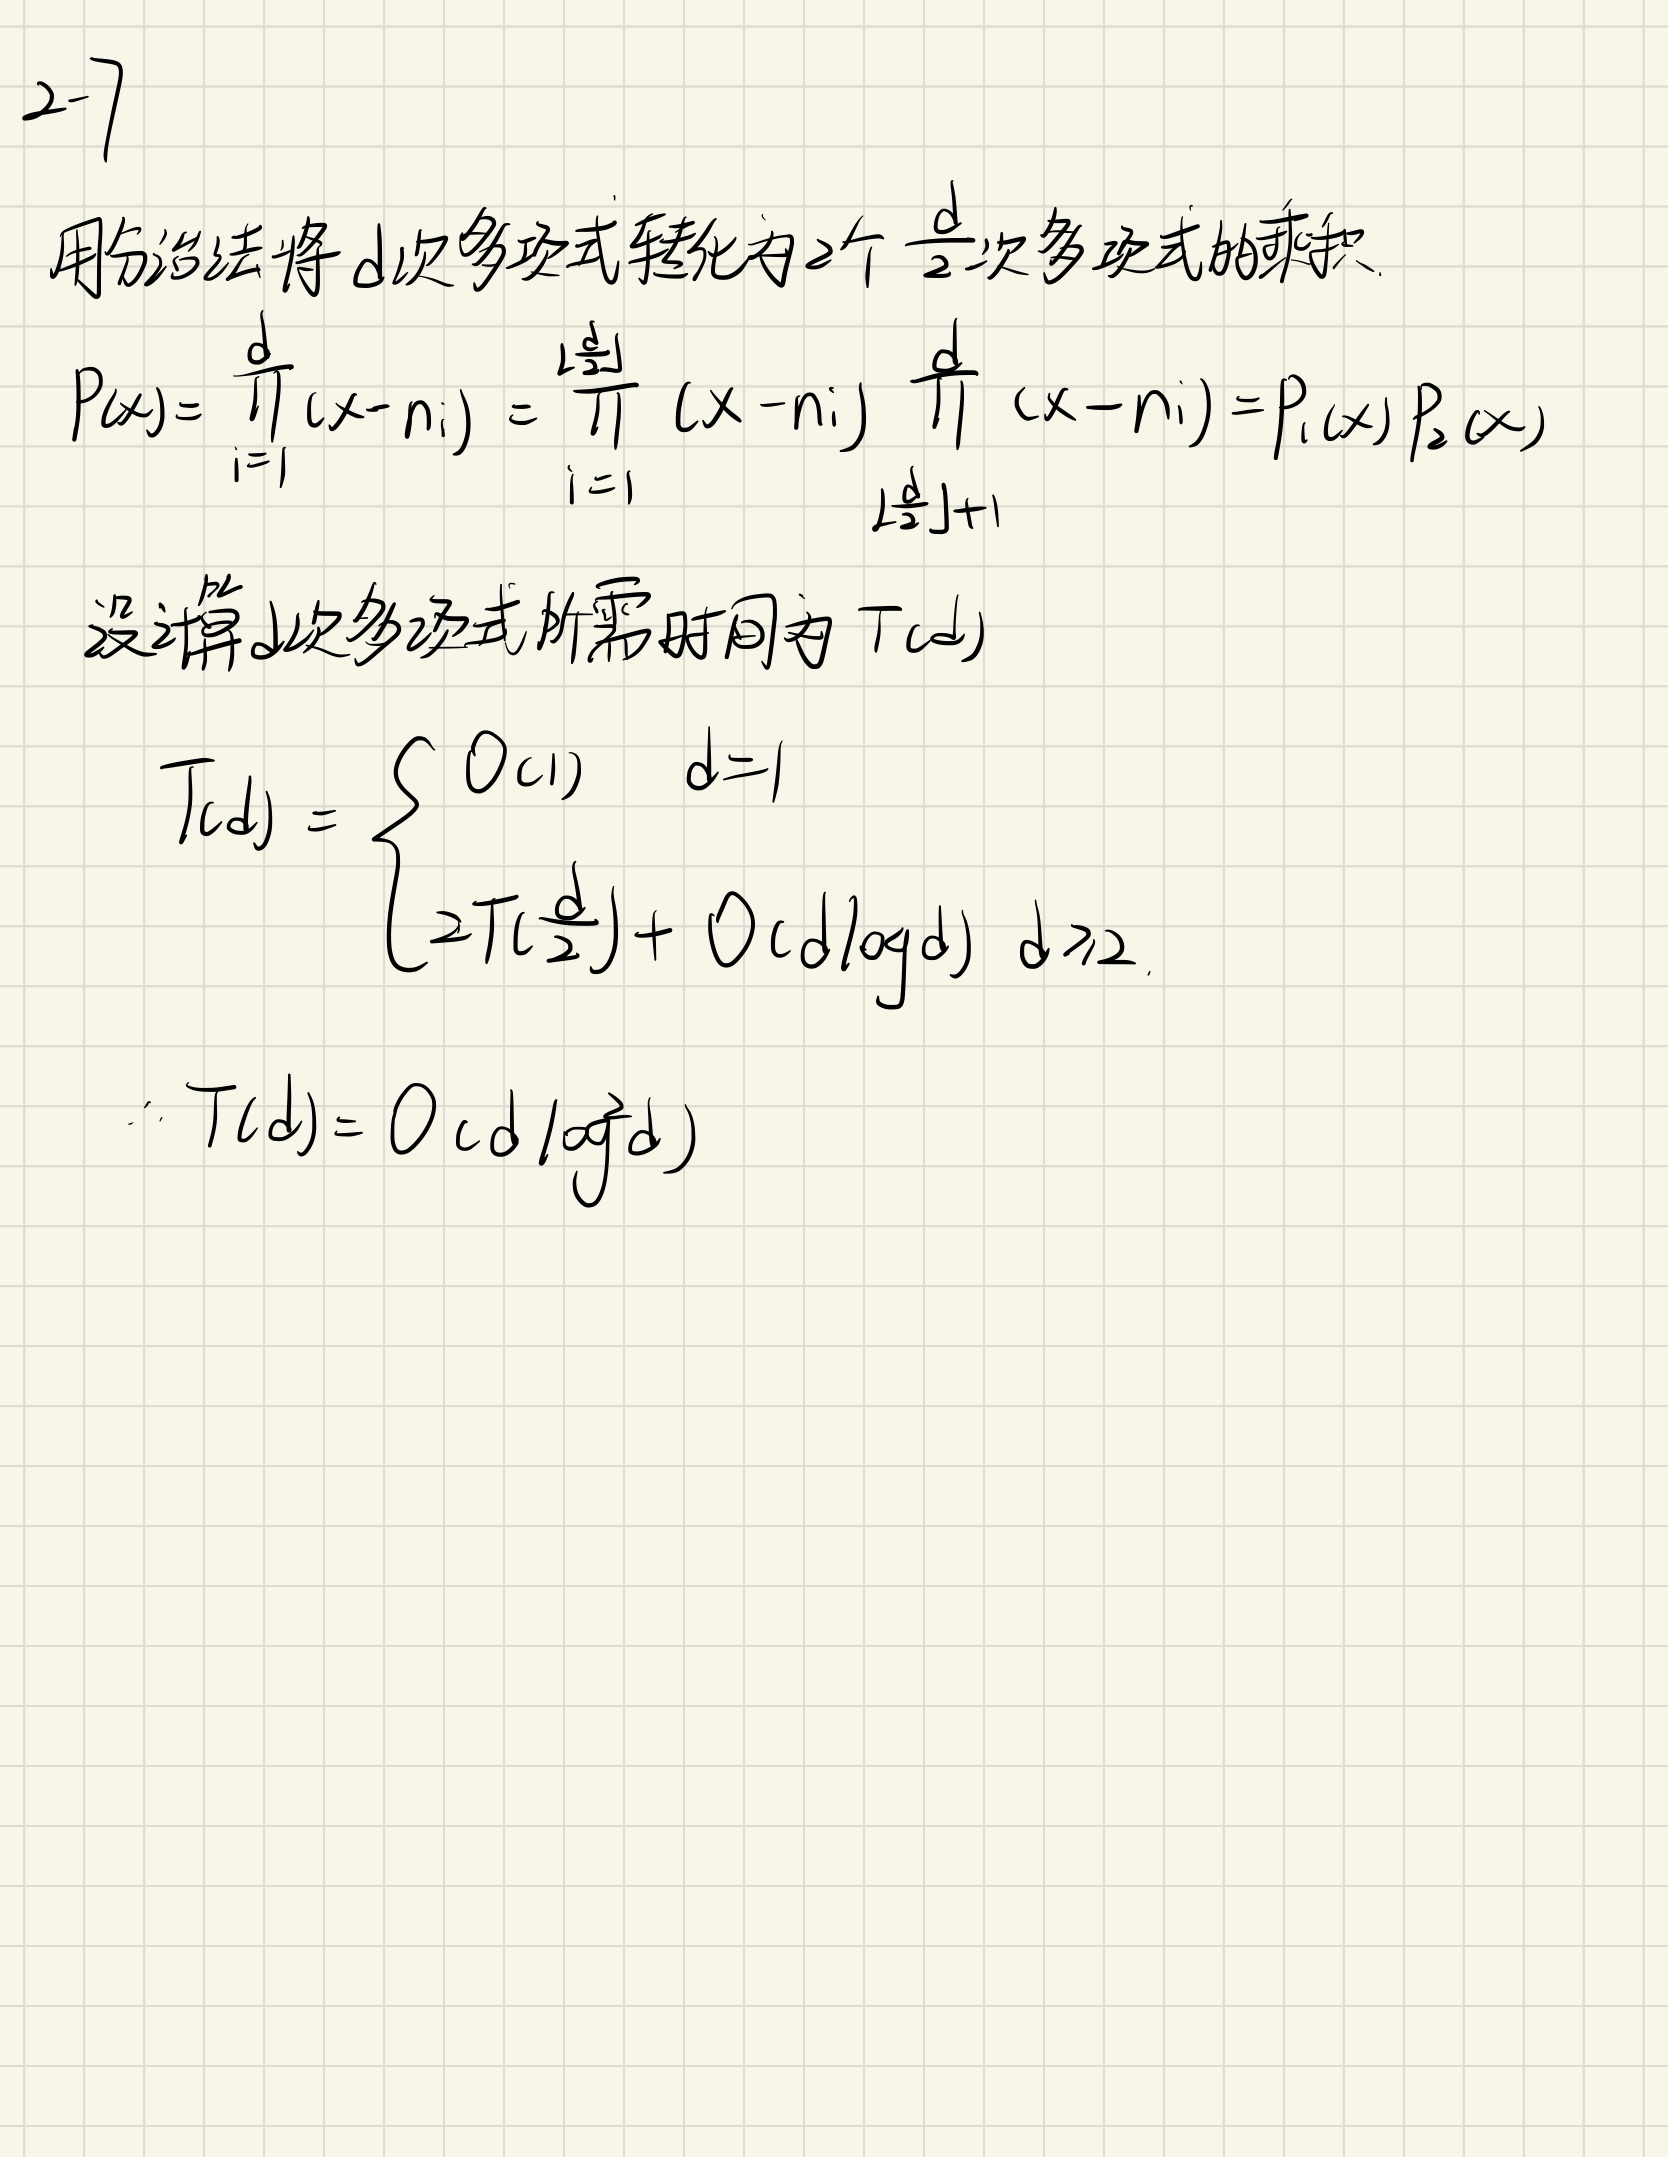 2-7
用分治法将d次多项式转化为2个 d/2 次多项式的乘积.
P(x) = ∏_{i=1}^{d} (x-n_i) = ∏_{i=1}^{⌊d/2⌋} (x-n_i) ∏_{⌊d/2⌋+1}^{d} (x-n_i) = P₁(x) P₂(x)
设计算d次多项式所需时间为 T(d)
T(d) = { O(1) d=1
2T(d/2) + O(d log d) d⩾2.
∴ T(d) = O(d log²d)